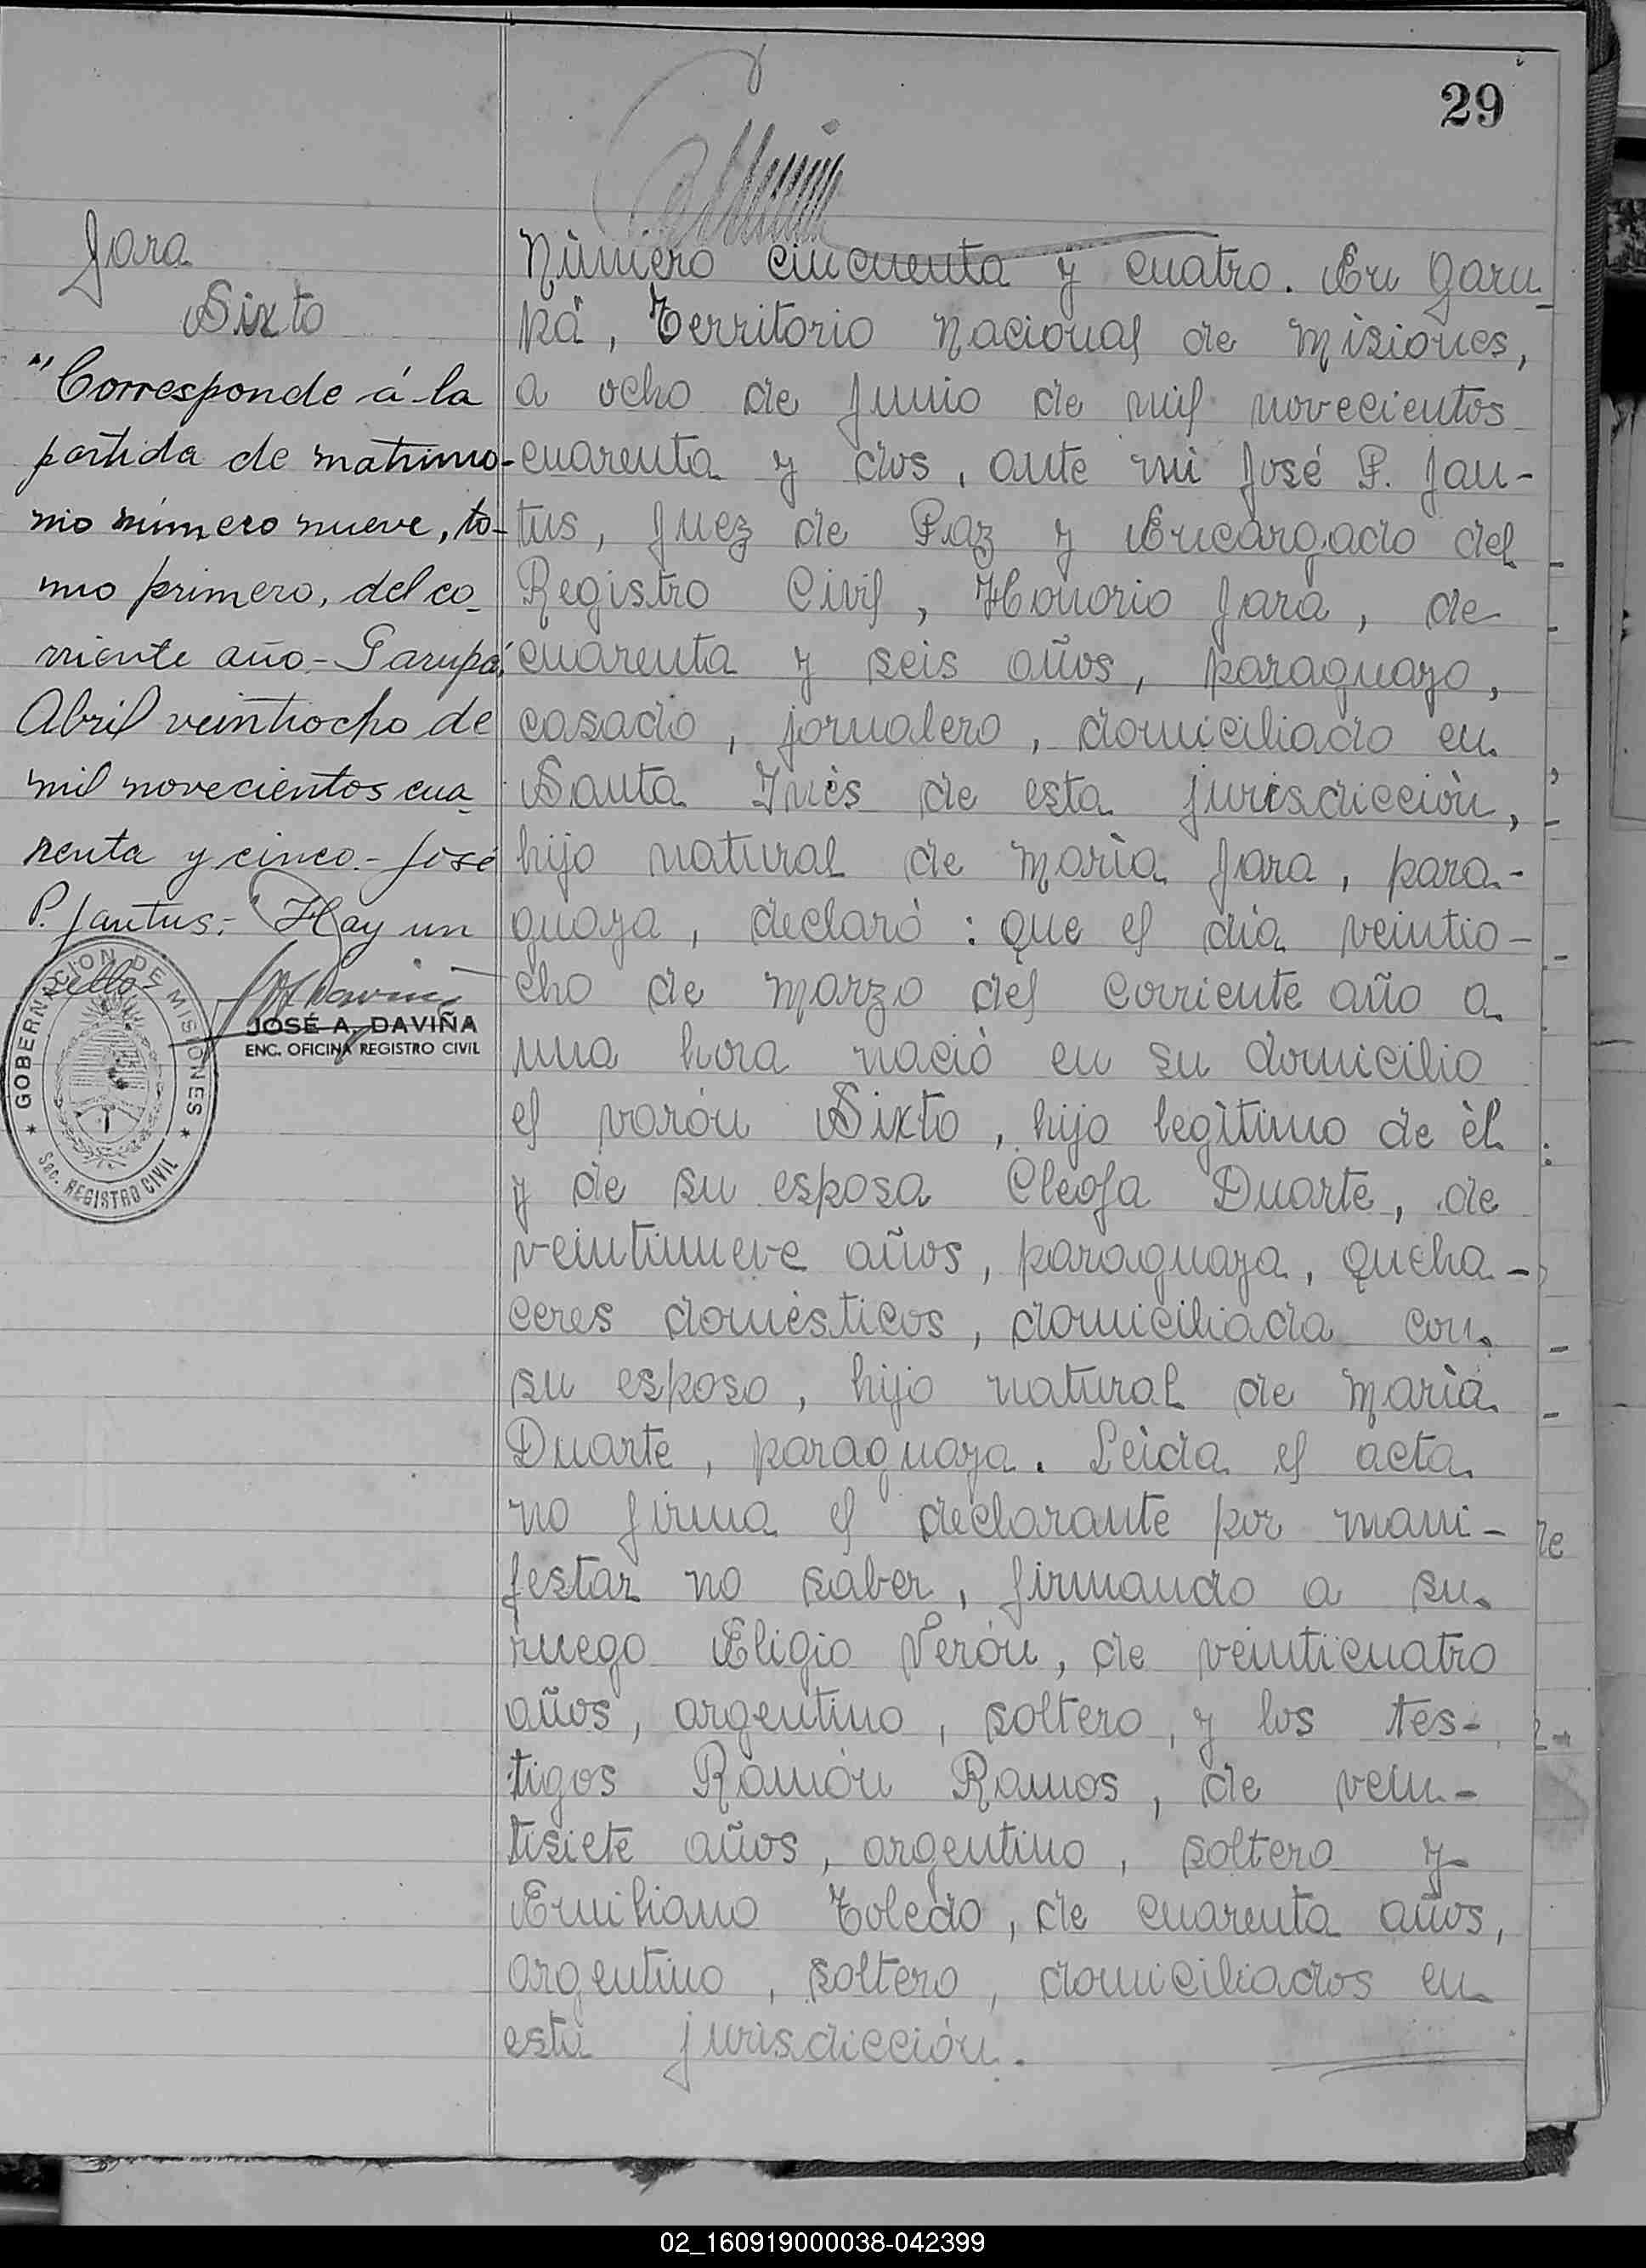 29
Jara
Sixto
"Corresponde á la
partida de matrimo-
nio número nueve, to-
mo primero, del co-
rriente año - Garupá,
Abril veintiocho de
mil novecientos cua-
renta y cinco - José
P. Jantus; - Hay un
sello -
GOBERNACION DE MISIONES
Sec. REGISTRO CIVIL
JOSÉ A. DAVIÑA
ENC. OFICINA REGISTRO CIVIL
Número cincuenta y cuatro. En Garu-
pá, Territorio Nacional de Misiones,
a ocho de Junio de mil novecientos
cuarenta y dos, ante mi José P. Jan-
tus, Juez de Paz y Encargado del
Registro Civil, Honorio Jara, de
cuarenta y seis años, paraguayo,
casado, jornalero, domiciliado en
Santa Inés de esta jurisdicción,
hijo natural de María Jara, para-
guaya, declaró: que el día veintio-
cho de Marzo del corriente año a
una hora nació en su domicilio
el varón Sixto, hijo legítimo de él
y de su esposa Cleofa Duarte, de
veintinueve años, paraguaya, queha-
ceres domésticos, domiciliada con
su esposo, hijo natural de María
Duarte, paraguaya. Leída el acta
no firma el declarante por mani-
festar no saber, firmando a su
ruego Eligio Verón, de veinticuatro
años, argentino, soltero, y los tes-
tigos Ramón Ramos, de vein-
tisiete años, argentino, soltero y
Emiliano Toledo, de cuarenta años,
argentino, soltero, domiciliados en
esta jurisdicción.
02_160919000038-042399